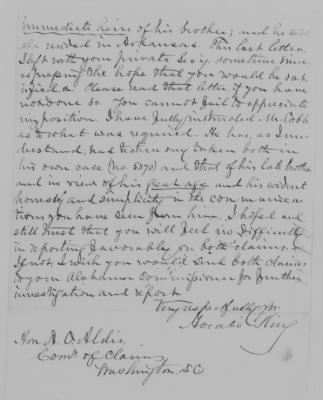 immediate heirs of his brother; and he said
she resided in Arkansas. This last letter,
I left with your private Secy, sometime since,
expressing the hope that you would be sat
isfied. Please read that letter if you have
not done so. You cannot fail to appreciate
my position. I have fully instructed Mr. Cobb
as to what was required. He has, as I un-
derstand, had testimony taken both in
his own case (no. 5070) and that of his late brother
and in view of his great age and his evident
honesty and simplicity in the communica-
tions you have seen from him, I hoped and
still trust that you will feel no difficulty
in reporting favorably on both claims.
If not, I wish you would send both claims
to your Alabama Commissioner for further
investigation and report
Very respectfully yr.
Horatio King
Hon. A. O. Aldis,
Comr. of Claims
Washington, D.C